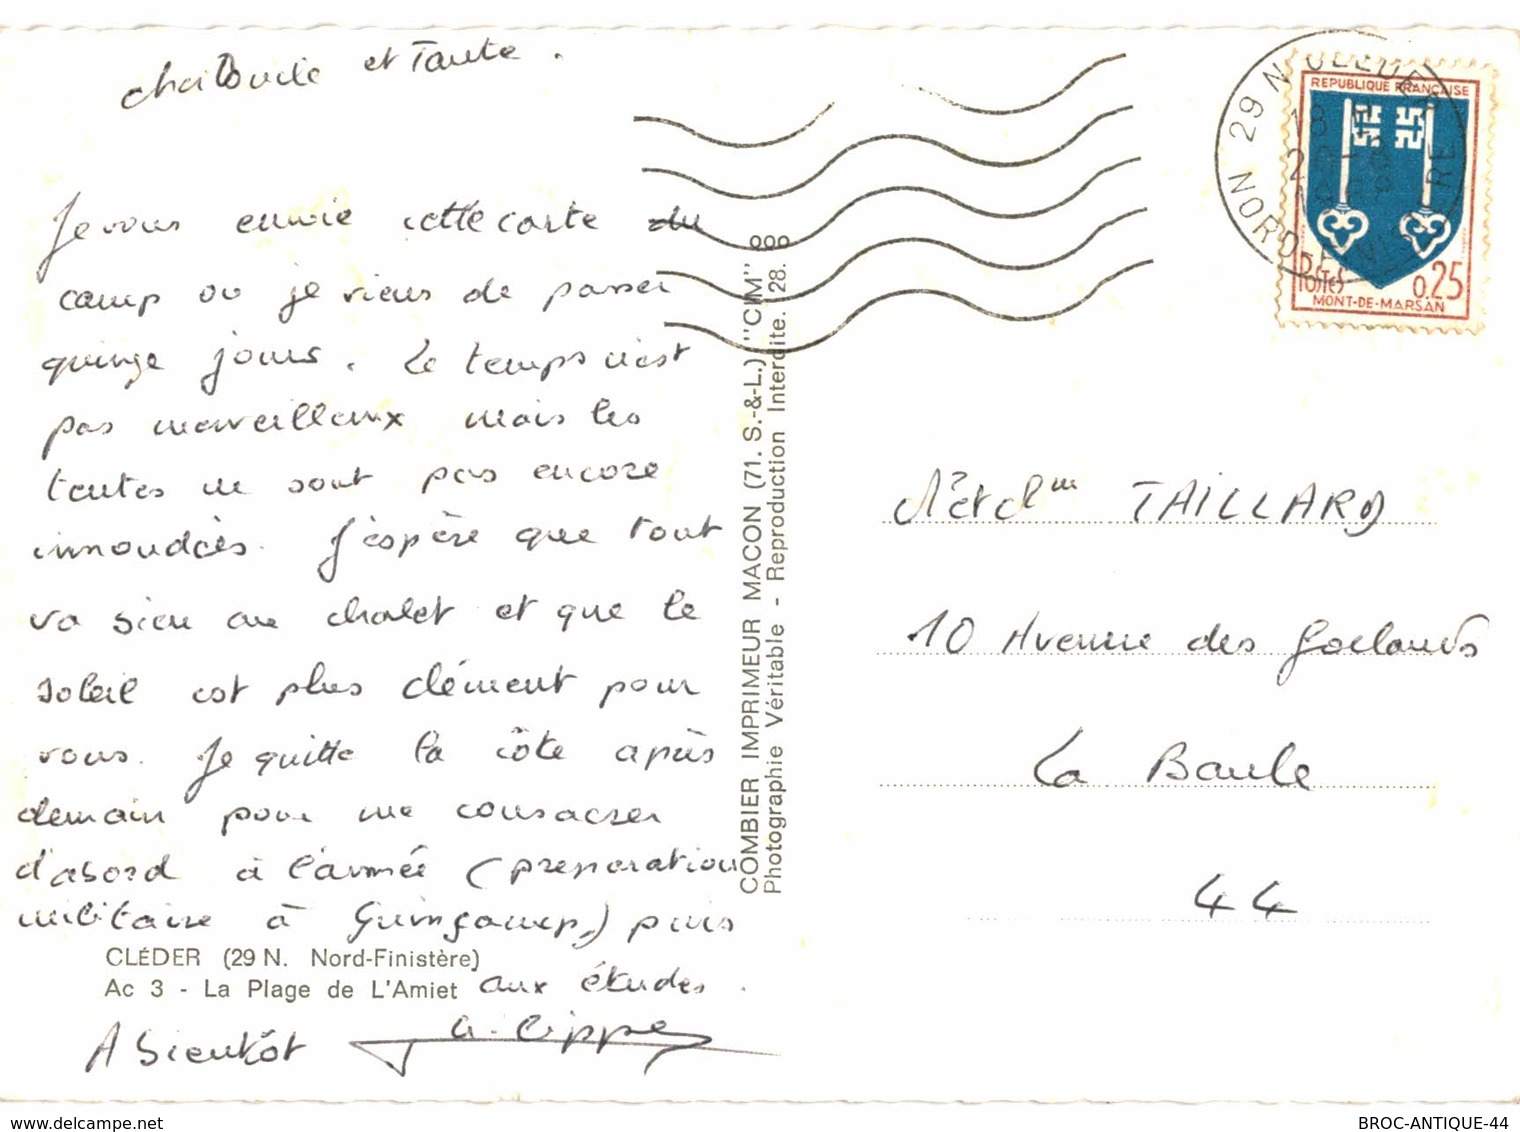 cher Oncle et Tante.
Je vous envoie cette carte du
camp où je viens de passer
quinze jours. Le temps n'est
pas merveilleux mais les
tentes ne sont pas encore
innondées. J'espère que tout
va bien au chalet et que le
soleil est plus clément pour
vous. Je quitte la côte après
demain pour me consacrer
d'abord à l'armée (preparation
militaire à Guingamp,) puis
aux études.
A bientôt
CLÉDER (29 N. Nord-Finistère)
Ac 3 - La Plage de L'Amiet
COMBIER IMPRIMEUR MACON (71. S.-&-L.) "CIM"
Photographie Véritable - Reproduction Interdite. 28.
29 N CLEDER
NORD-FINISTERE
REPUBLIQUE FRANÇAISE
POSTES 0.25
MONT-DE-MARSAN
TAILLARD
10 Avenue des Goelands
La Baule
44
BROC-ANTIQUE-44